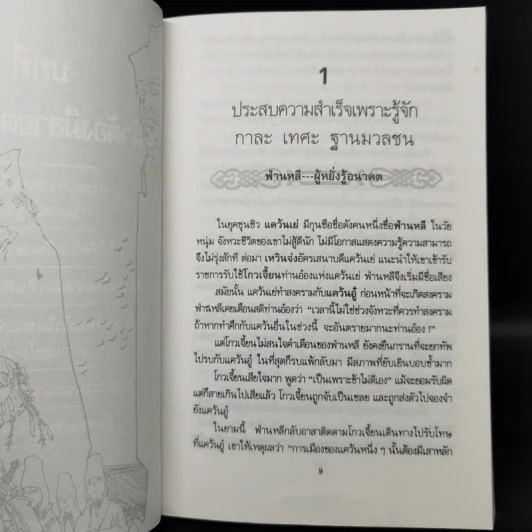 1
ประสบความสำเร็จเพราะรู้จัก
กาละ เทศะ ฐานมวลชน
ฟ่านหลี---ผู้หยั่งรู้อนาคต
ในยุคชุนชิว แคว้นเย่ มีกุนซือชื่อดังคนหนึ่งชื่อฟ่านหลี ในวัย
หนุ่ม จังหวะชีวิตของเขาไม่สู้ดีนัก ไม่มีโอกาสแสดงความรู้ความสามารถ
จึงไม่รุ่งสักที ต่อมา เหวินจ่งอัครเสนาบดีแคว้นเย่ แนะนำให้เขาเข้ารับ
ราชการรับใช้โกวเจี้ยนท่านอ๋องแห่งแคว้นเย่ ฟ่านหลีจึงเริ่มมีชื่อเสียง
สมัยนั้น แคว้นเย่ทำสงครามกับแคว้นอู๋ ก่อนหน้าที่จะเกิดสงคราม
ฟ่านหลีเคยเตือนสติท่านอ๋องว่า "เวลานี้ไม่ใช่ช่วงจังหวะที่ควรทำสงคราม
ถ้าหากทำศึกกับแคว้นอื่นในช่วงนี้ จะอันตรายมากนะท่านอ๋อง !"
แต่โกวเจี้ยนไม่สนใจคำเตือนของฟ่านหลี ยังคงยืนกรานที่จะยกทัพ
ไปรบกับแคว้นอู๋ ในที่สุดก็รบแพ้กลับมา มีสภาพที่ยับเยินบอบช้ำมาก
โกวเจี้ยนเสียใจมาก พูดว่า "เป็นเพราะข้าไม่ดีเอง" แม้จะยอมรับผิด
แต่ก็สายเกินไปเสียแล้ว โกวเจี้ยนถูกจับเป็นเชลย และถูกส่งตัวไปจองจำ
ยังแคว้นอู๋
ในยามนี้ ฟ่านหลีกลับอาสาติดตามโกวเจี้ยนเดินทางไปรับโทษ
ที่แคว้นอู๋ เขาให้เหตุผลว่า "การเมืองของแคว้นหนึ่ง ๆ นั้นต้องมีเสาหลัก
9